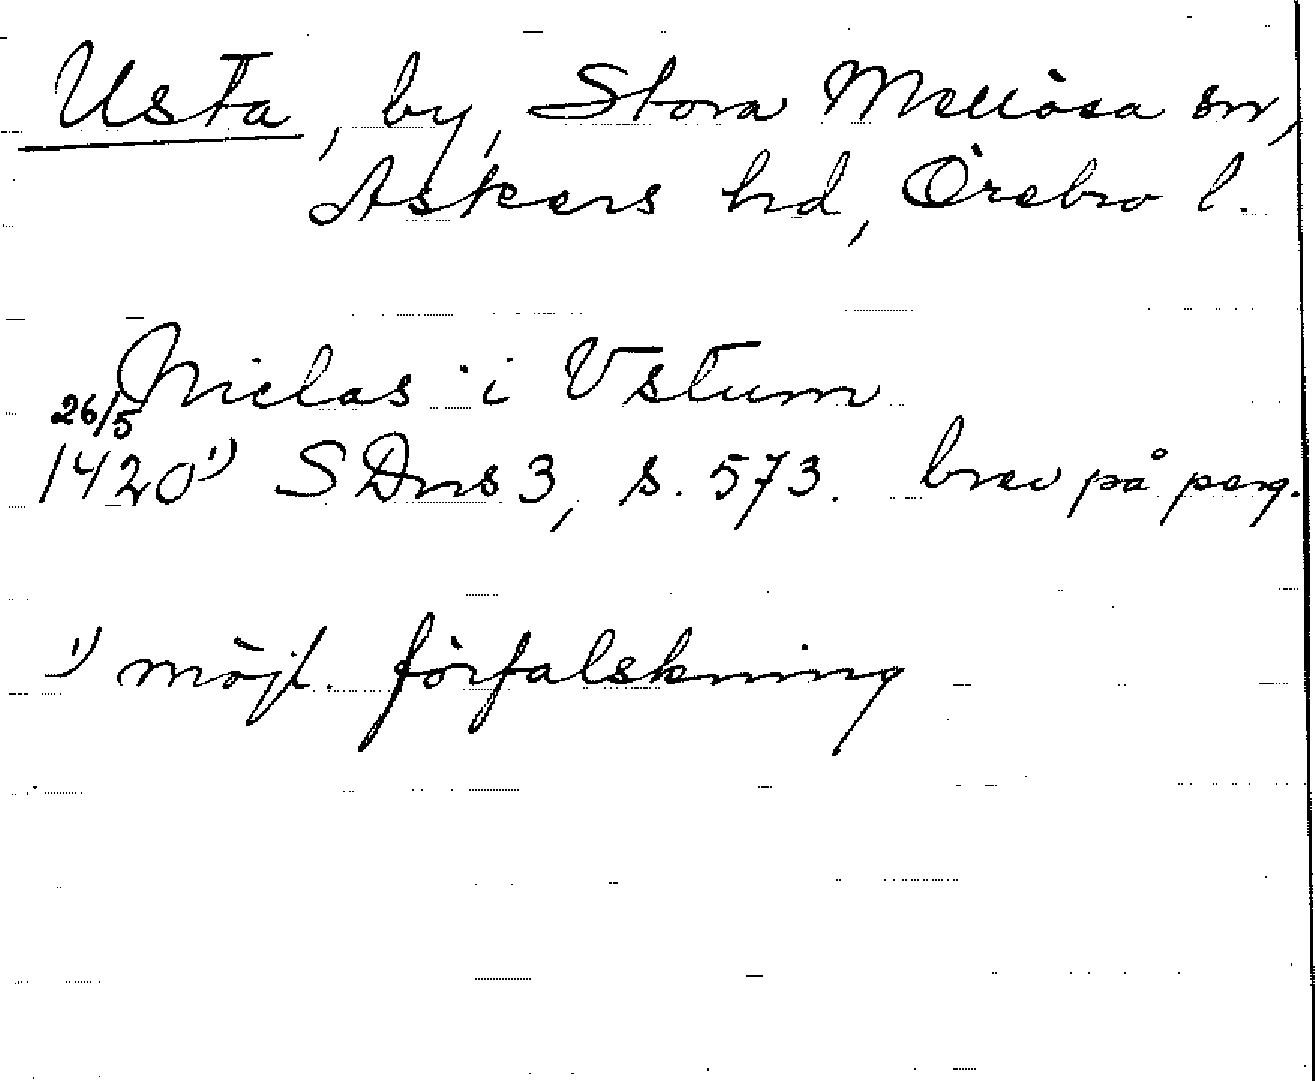 Usta, by, Stora Mellösa sn,
Askers hd, Örebro l.
Niclas i Vstum
26/5
1420¹⁾ SDns 3, s. 573. brev på perg.
¹⁾ möjl. förfalskning